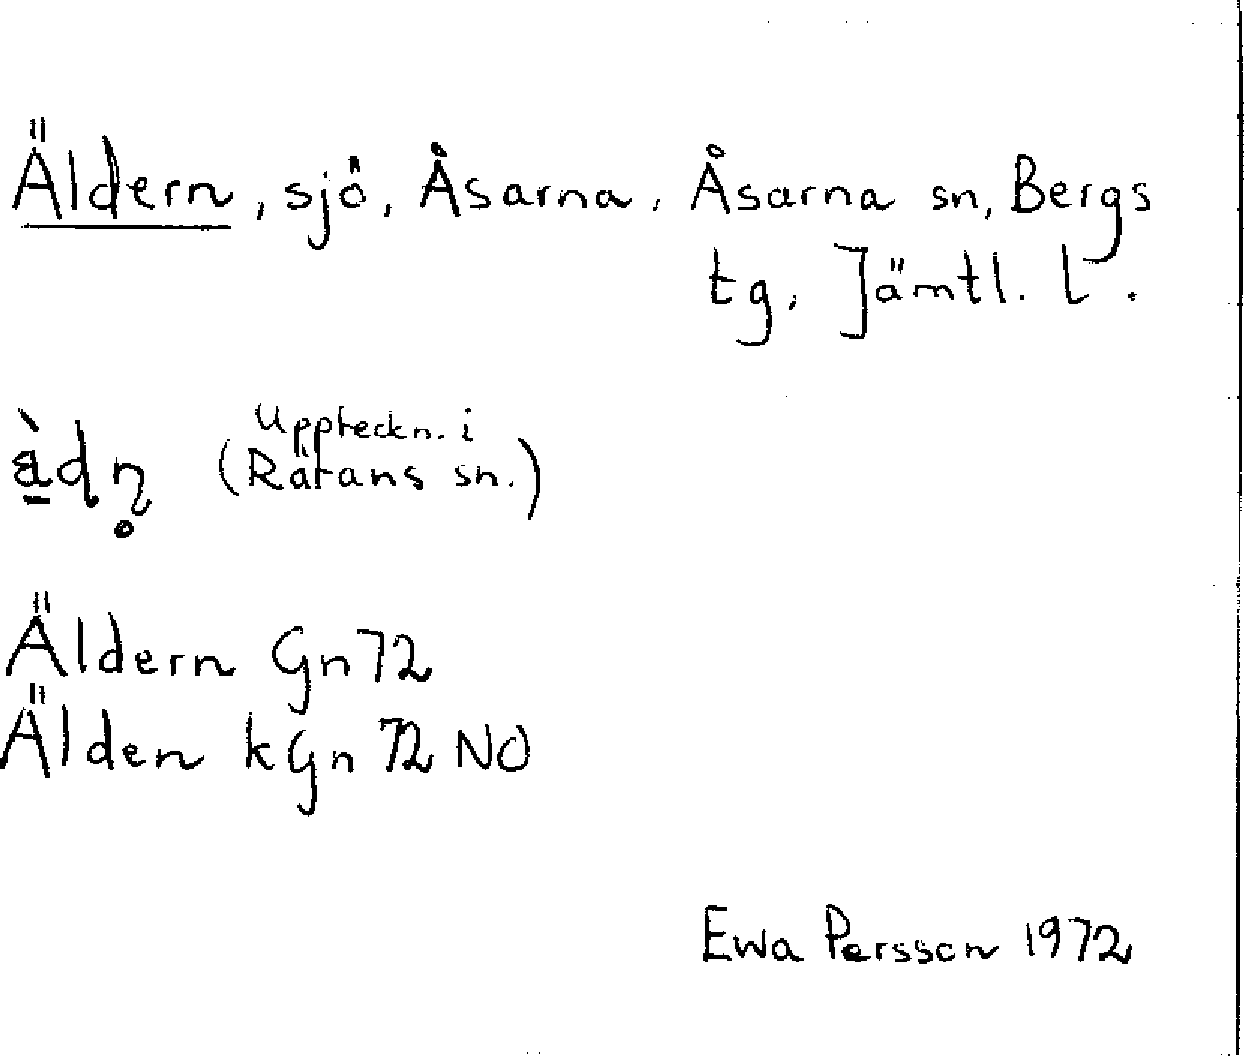 Äldern, sjö, Åsarna, Åsarna sn, Bergs
tg, Jämtl. l.
(Uppteckn. i
Rätans sn.)
Äldern Gn 72
Älden kGn 72 NO
Ewa Persson 1972